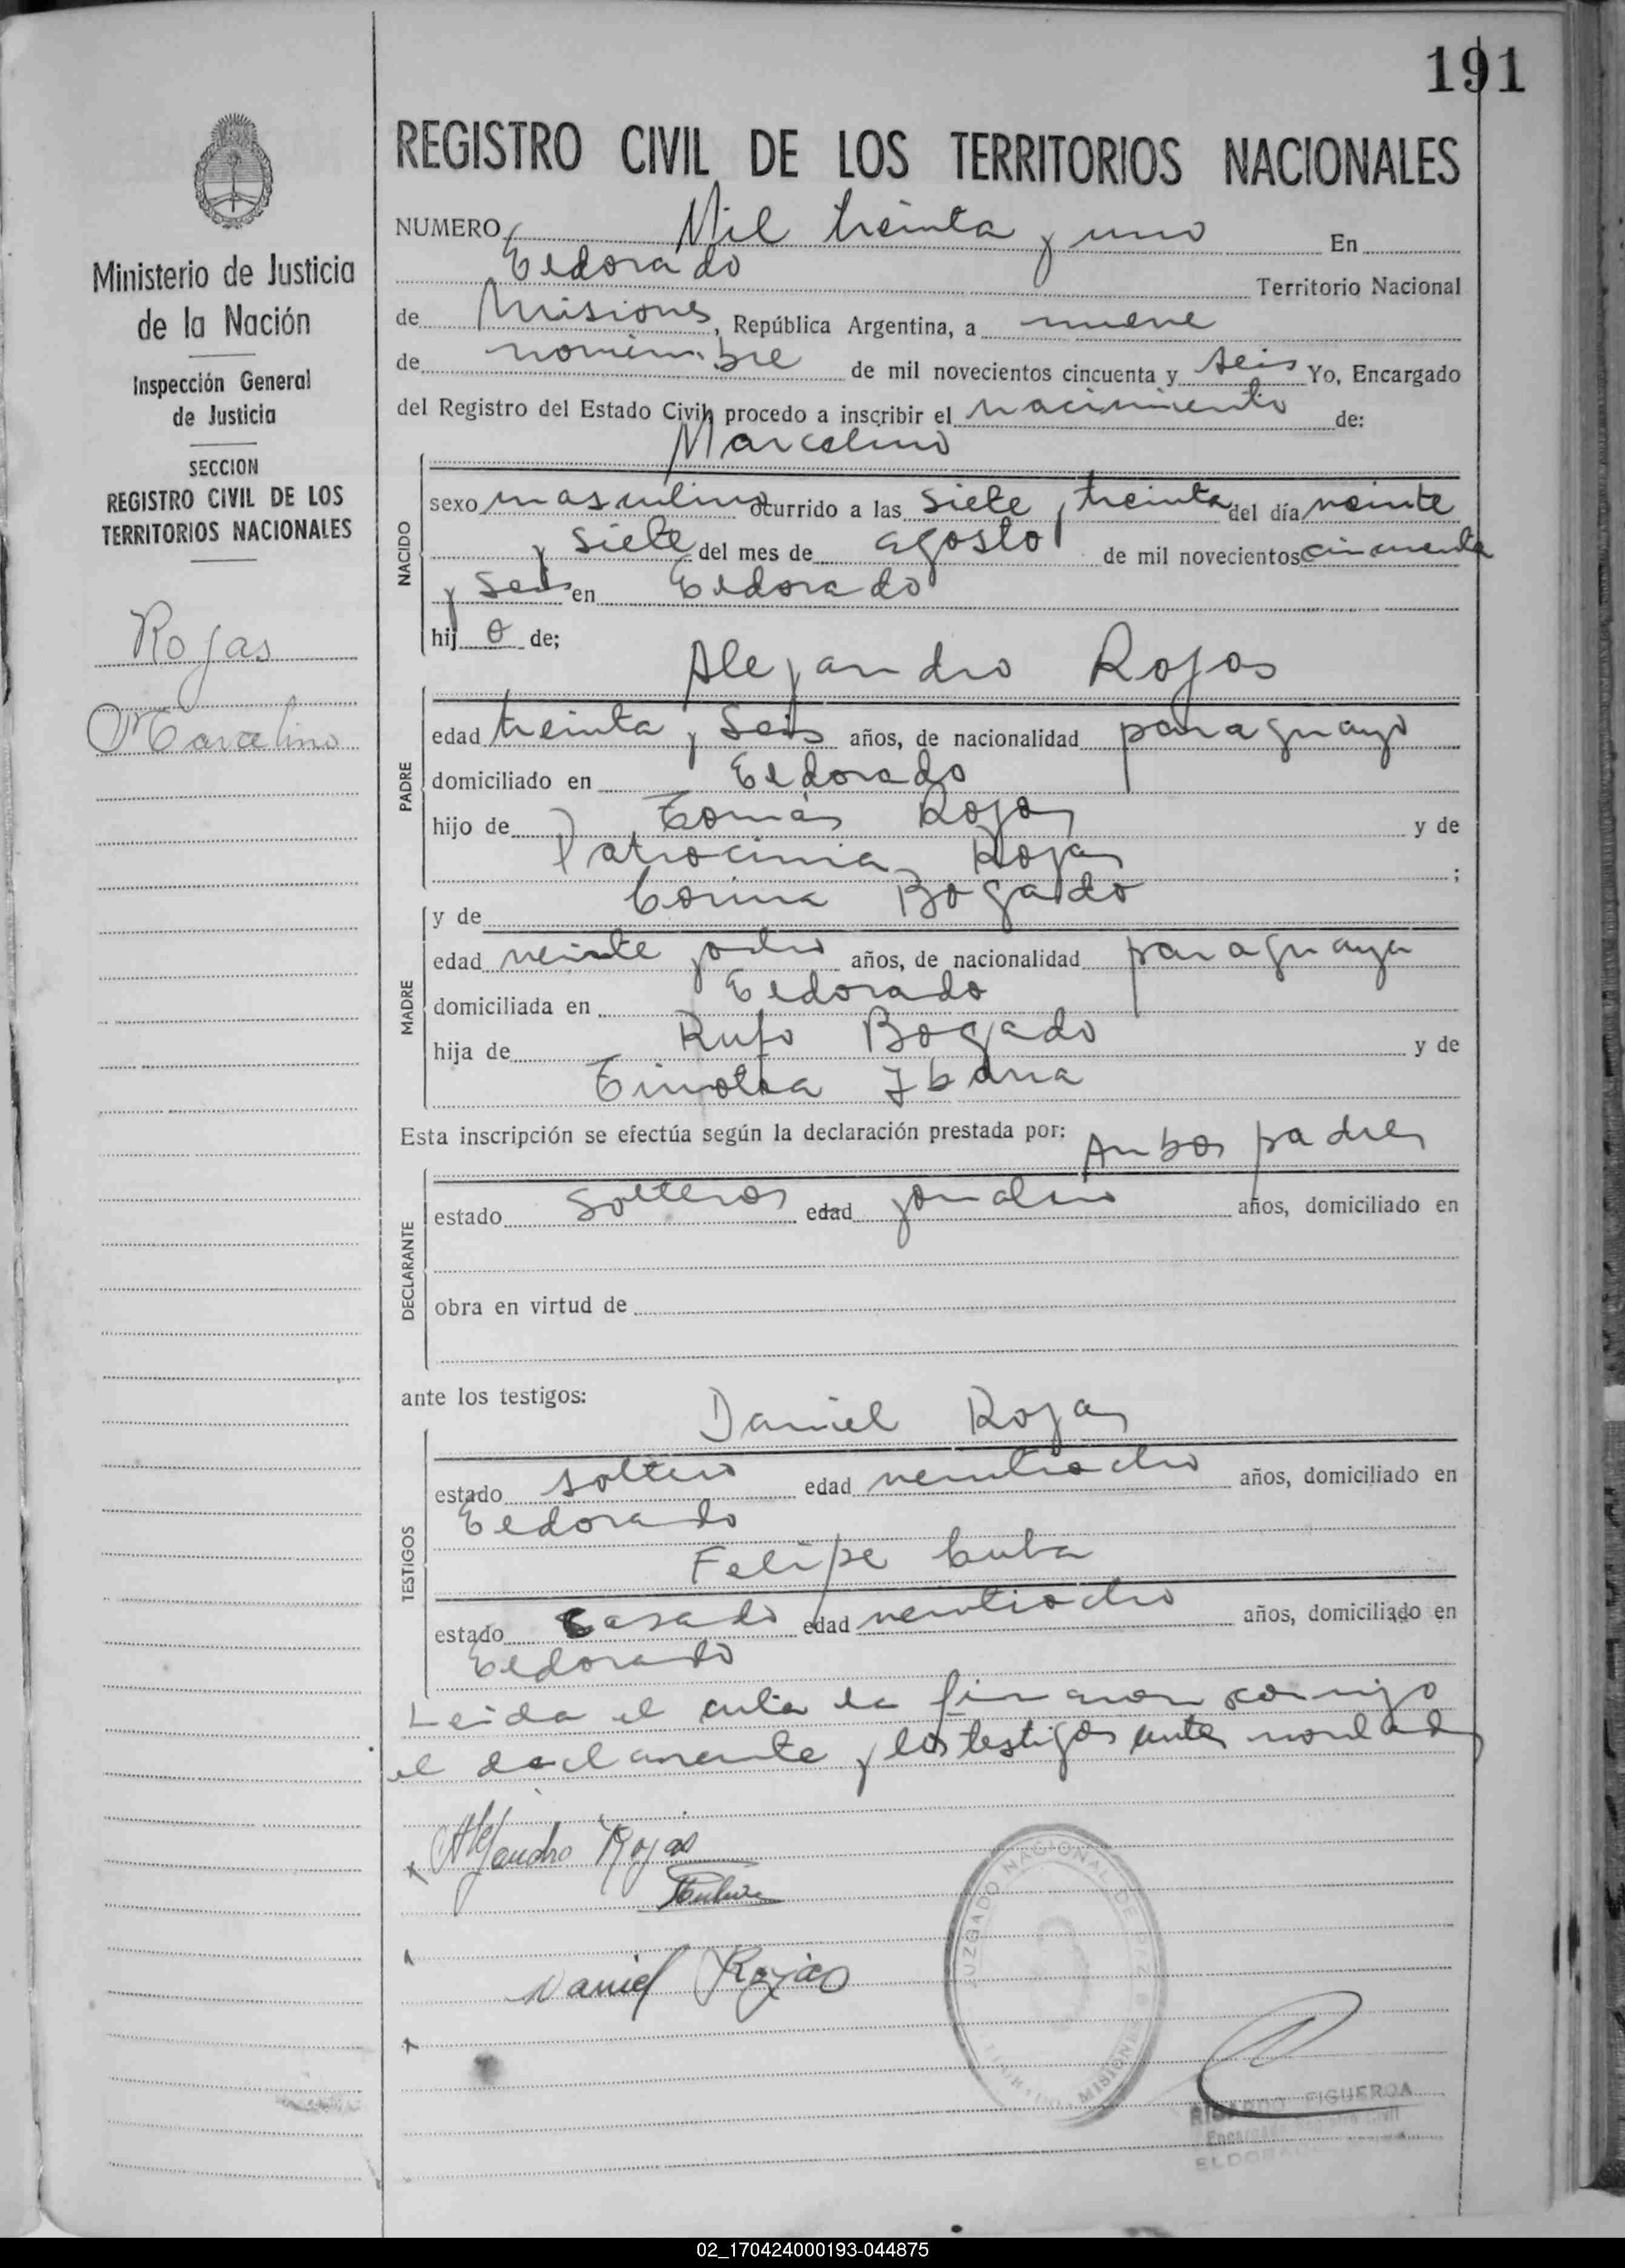 191
REGISTRO CIVIL DE LOS TERRITORIOS NACIONALES
Ministerio de Justicia
de la Nación
Inspección General
de Justicia
SECCION
REGISTRO CIVIL DE LOS
TERRITORIOS NACIONALES
Rojas
Marcelino
NUMERO Mil treinta y uno En
Eldorado Territorio Nacional
de Misiones, República Argentina, a nueve
de noviembre de mil novecientos cincuenta y seis Yo, Encargado
del Registro del Estado Civil, procedo a inscribir el nacimiento de:
Marcelino
NACIDO
sexo masculino ocurrido a las siete y treinta del día veinte
y siete del mes de agosto de mil novecientos cincuenta
y seis en Eldorado
hij o de;
Alejandro Rojas
PADRE
edad treinta y seis años, de nacionalidad paraguayo
domiciliado en Eldorado
hijo de Tomás Rojas y de
Patrocinia Rojas ;
y de Corina Bogado
MADRE
edad veinte y ocho años, de nacionalidad paraguaya
domiciliada en Eldorado
hija de Rufo Bogado y de
Timotea
Esta inscripción se efectúa según la declaración prestada por: Ambos padres
DECLARANTE
estado solteros edad jornalero años, domiciliado en
obra en virtud de
ante los testigos:
Daniel Rojas
TESTIGOS
estado soltero edad veintiocho años, domiciliado en
Eldorado
Felipe
estado casado edad veintiocho años, domiciliado en
Eldorado
Leida el acta la firmaron conmigo
el declarante y los testigos antes nombrados
Alejandro Rojas
Daniel Rojas
JUZGADO NACIONAL DE PAZ
MISIONES
RICARDO FIGUEROA
02_170424000193-044875